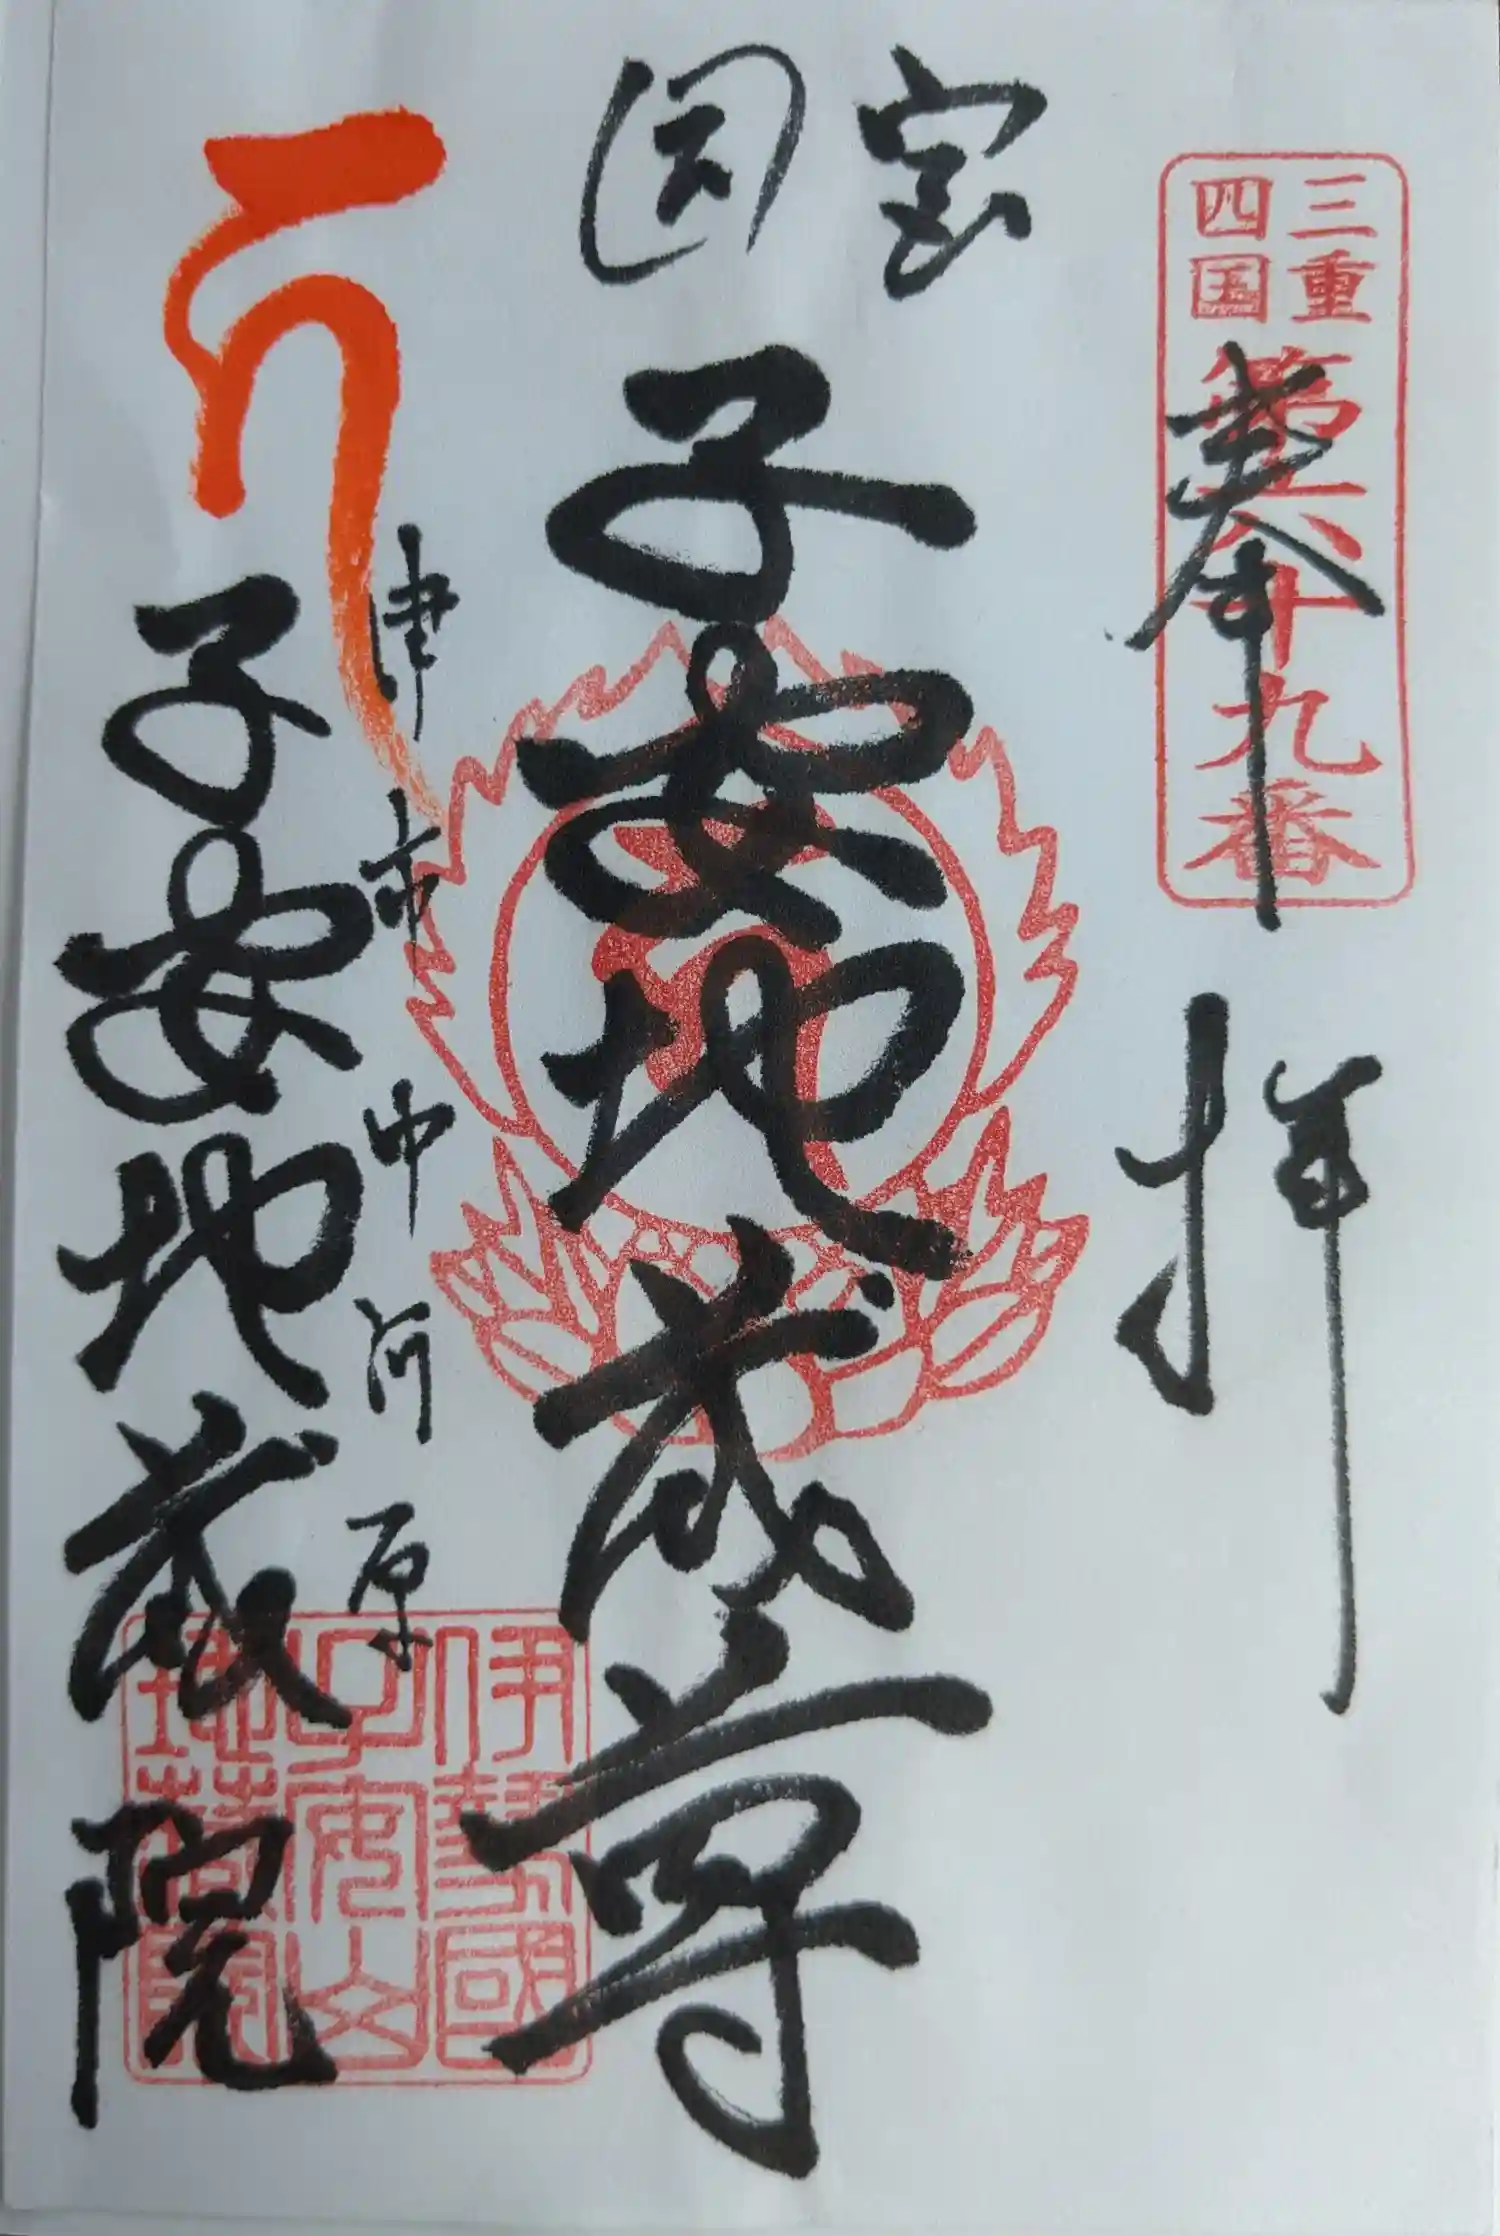 三重
四国
第六十九番
奉拝
宝国
子安地蔵尊
津市中河原
子安地蔵院
伊勢國
子安山
地蔵院